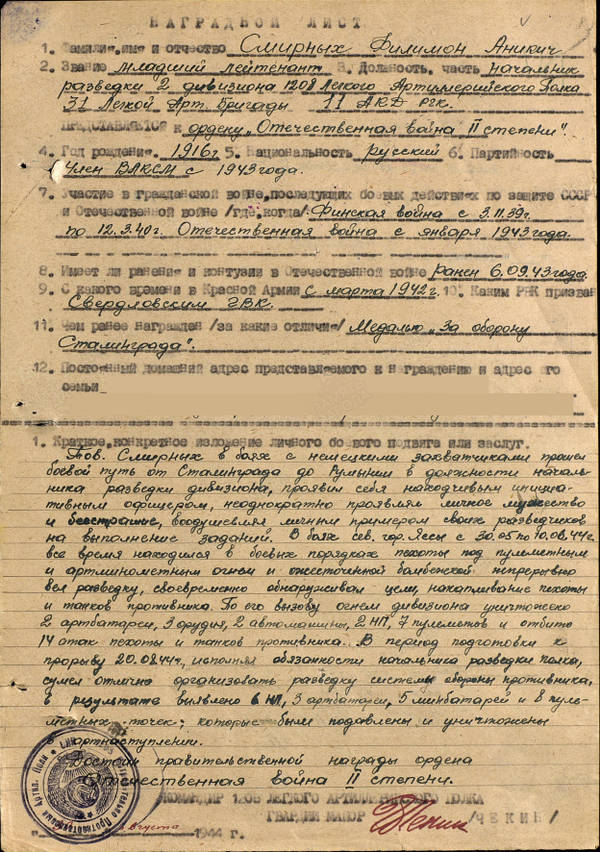 НАГРАДНОЙ ЛИСТ
1. Фамилия, имя и отчество Смирных Филимон Аникич
2. Звание младший лейтенант 3. Должность, часть начальник
разведки 2 дивизиона 1208 Легкого Артиллерийского Полка
31 Легкой Арт. Бригады. 11 АКД РГК.
ПРЕДСТАВЛЯЕТСЯ к ордену „Отечественная война II степени".
4. Год рождения 1916г 5. Национальность русский 6. Партийность
Член ВЛКСМ с 1943 года.
7. Участие в гражданской войне, последующих боевых действиях по защите СССР
и Отечественной войне /где, когда/ Финская война с 3.11.39г.
по 12.3.40г. Отечественная война с января 1943 года.
8. Имеет ли ранения и контузии в Отечественной войне ранен 6.09.43 года
9. С какого времени в Красной Армии с марта 1942 г. 10. Каким РВК призван
Свердловским ГВК.
11. Чем ранее награжден /за какие отличия/ Медалью „За оборону
Сталинграда".
12. Постоянный домашний адрес представляемого к награждению и адрес его
семьи
1. Краткое, конкретное изложение личного боевого подвига или заслуг.
Тов. Смирных в боях с немецкими захватчиками прошел
боевой путь от Сталинграда до Румынии в должности началь-
ника разведки дивизиона, проявил себя находчивым инициа-
тивным офицером, неоднократно проявлял личное мужество
и бесстрашие, воодушевляя личным примером своих разведчиков
на выполнение заданий. В боях сев. гор. Яссы с 30.05 по 10.08.44г.
все время находился в боевых порядках пехоты под пулеметным
и артминометным огнем и ожесточенной бомбежкой непрерывно
вел разведку, своевременно обнаруживал цели, накапливание пехоты
и танков противника. По его вызову огнем дивизиона уничтожено
2 артбатареи, 3 орудия, 2 автомашины, 2 НП, 7 пулеметов и отбито
14 атак пехоты и танков противника. В период подготовки к
прорыву 20.08.44г., исполняя обязанности начальника разведки полка,
сумел отлично организовать разведку системы обороны противника,
в результате выявлено 6 НП, 3 артбатареи, 5 минбатарей и 8 пуле-
метных точек, которые были подавлены и уничтожены
в артнаступлении.
Достоин правительственной награды ордена
Отечественная война II степени.
КОМАНДИР 1208 ЛЕГКОГО АРТИЛЛЕРИЙСКОГО ПОЛКА
ГВАРДИИ МАЙОР /ЧЕКИН/
августа 1944 г.